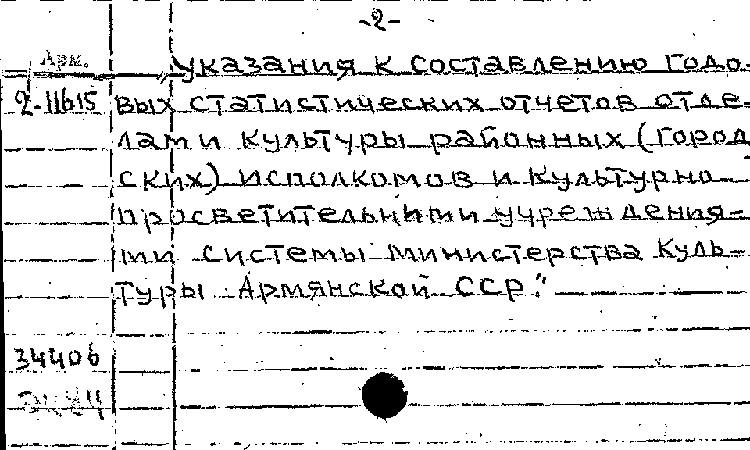 -2-
Арм.
указания к составлению годо-
2-11615 вых статистических отчетов отде-
лами культуры районных (город
ских) исполкомов и культурно-
просветительными учреждения-
ми системы министерства куль-
туры Армянской ССР."
34406